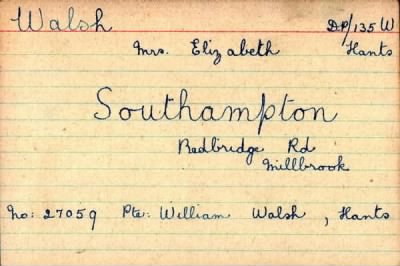 Walsh DP/135 W
Mrs. Elizabeth Hants
Southampton
Redbridge Rd
Millbrook
No: 27059 Pte: William Walsh, Hants